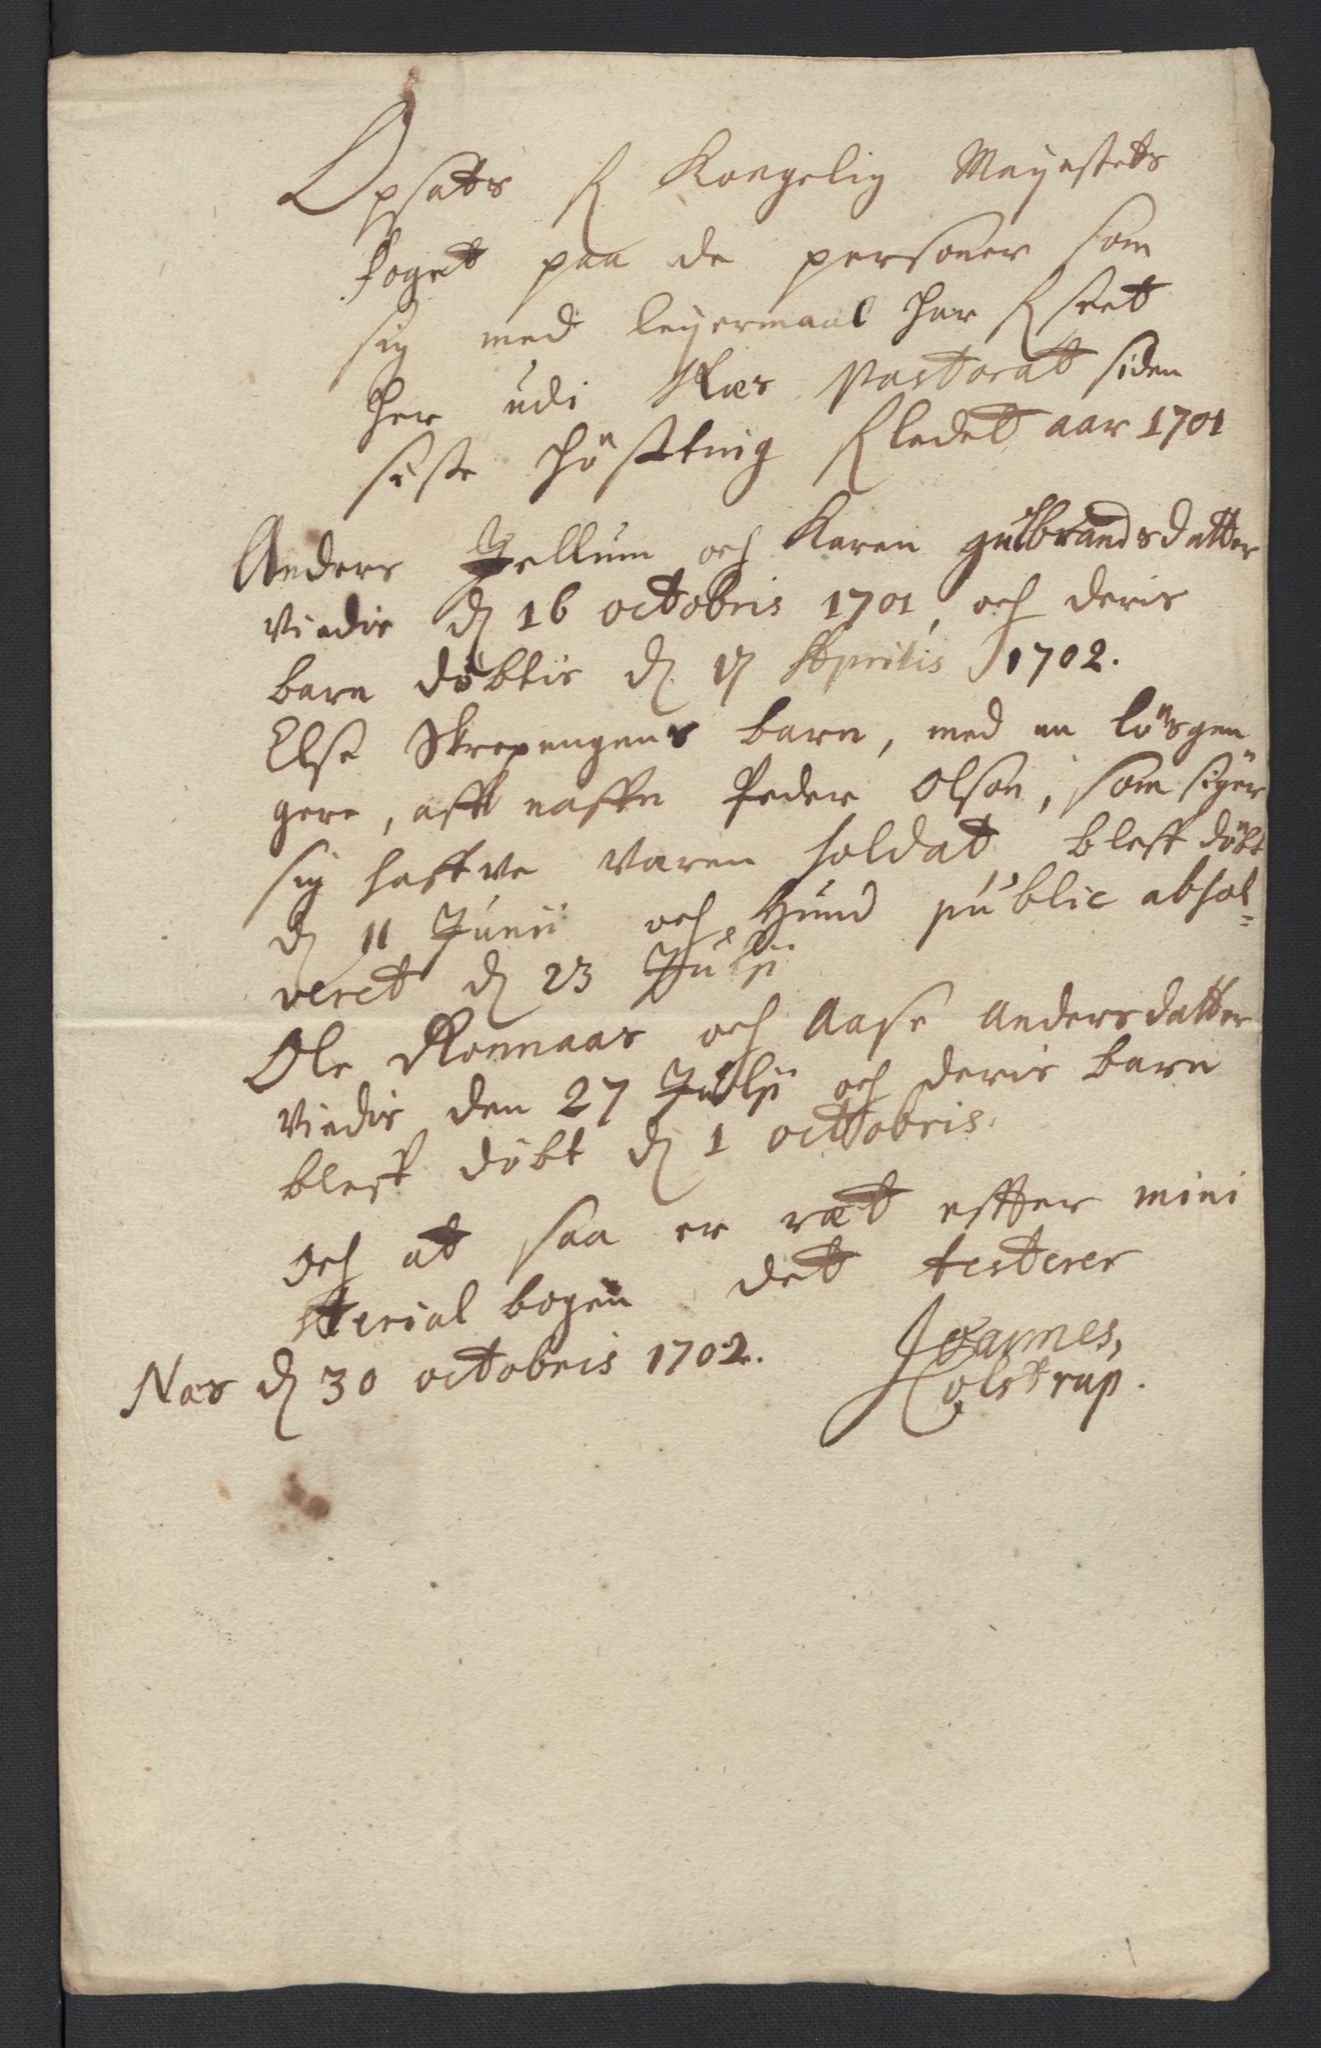 Opsats f Kongelig Mayestets
foget paa de personer som
sig med leyermaal har fseet
her udi Næs Pastorat siden
siste Höstting fledet aar 1701
Anders Jellum och Karen gulbrandsdatter
viedis d 16 octobris 1701, och deris
barn döbtis d 17 Aprilis 1702.
Else Skrepengens barn, med en lösgen=
gere, aff naffn Peder Olson, som siger
sig haffve varen soldat bleff döbt
d 11 Junii och hund public absol=
veret d 23 Julii
Ole Ronnaas och Aase Andersdatter
viedis den 27 Julii och deris barn
bleff döbt d 1 octobris.
Och at saa er ræt effter mini
sterial bogen det testerer
Næs d 30 octobris 1702. Joannes,
Colstrup.